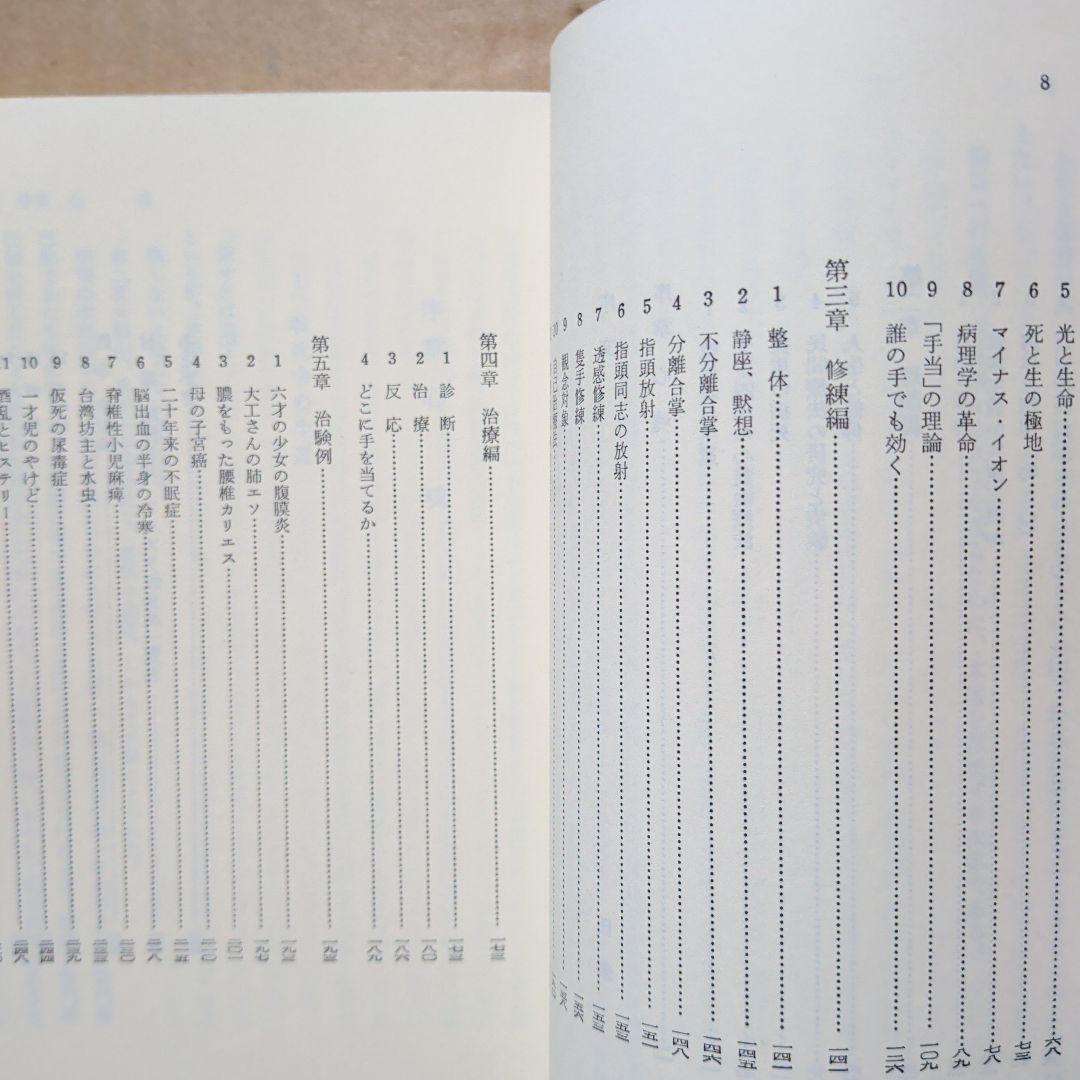 8
5 光と生命 六八
6 死と生の極地 七三
7 マイナス・イオン 七八
8 病理学の革命 八九
9 「手当」の理論 一〇九
10 誰の手でも効く 一二六
第三章 修練編 一四一
1 整体 一四一
2 静座、黙想 一四五
3 不分離合掌 一四六
4 分離合掌 一四八
5 指頭放射 一五一
6 指頭同志の放射 一五三
7 透感修練 一五三
8 隻手修練 一五六
9 観念対象
10 自己治療法
第四章 治療編 一七三
1 診断 一七三
2 治療 一八〇
3 反応 一八六
4 どこに手を当てるか 一八九
第五章 治験例 一九三
1 六才の少女の腹膜炎 一九三
2 大工さんの肺エソ 一九七
3 膿をもった腰椎カリエス 二〇一
4 母の子宮癌 二一〇
5 二十年来の不眠症 二一五
6 脳出血の半身の冷寒 二一八
7 脊椎性小児麻痺 二三〇
8 台湾坊主と水虫 二三三
9 仮死の尿毒症 二三九
10 一才児のやけど 二四四
11 酒乱とヒステリー 二四八